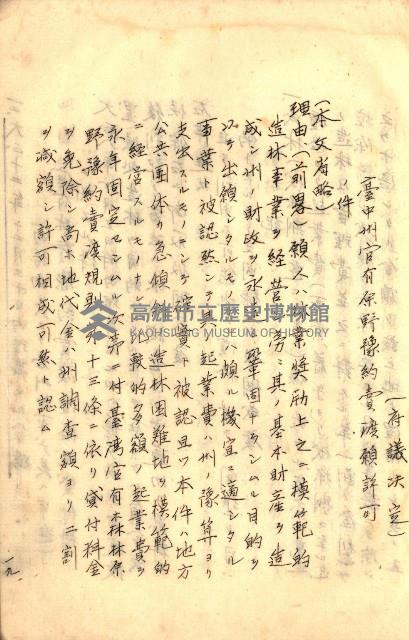 （府議決定）
臺中州官有原野豫約賣渡願許可
ノ件
（本文省略）
理由、（前畧）願人ハ業奬勵上之ニ模範的
造林事業ヲ経営シ旁〻其ノ基本財産ヲ造
成シ州ノ財政ヲ永遠ニ鞏固ナラシムル目的ヲ
以テ出願シタルモノニシテ頗ル機宜ニ適シタル
事業ト被認然シテ其ノ起業費ハ州ノ豫算ヨリ
支出スルモノニシテ確實ト被認且ツ本件ハ地方
公共團体カ急傾ノ造林困難地ヲ模範的
ニ経営スルモノナ比較的多額ノ起業費ヲ
永年固定セシムル次第ニ付臺灣官有森林原
野豫約賣渡規則第十三條ニ依リ貸付料金
ヲ免除シ尚ホ地代金ハ州調查額ヨリ二割
ヲ減額シ許可相成可然ト認ム
一九
高雄市立歷史博物館
KAOHSIUNG MUSEUM OF HISTORY